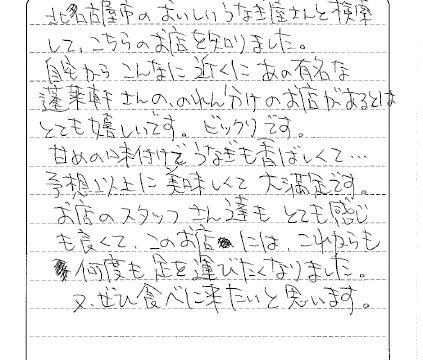 北名古屋市のおいしいうなぎ屋さんと検索
して、こちらのお店を知りました。
自宅からこんなに近くにあの有名な
蓬莱軒さんの、のれん分けのお店があるとは
とても嬉しいです。ビックリです。
甘めの味付けでうなぎも香ばしくて…
予想以上に美味しくて大満足です。
お店のスタッフさん達もとても感じ
も良くて、このお店には、これからも
何度も足を運びたくなりました。
又、ぜひ食べに来たいと思います。